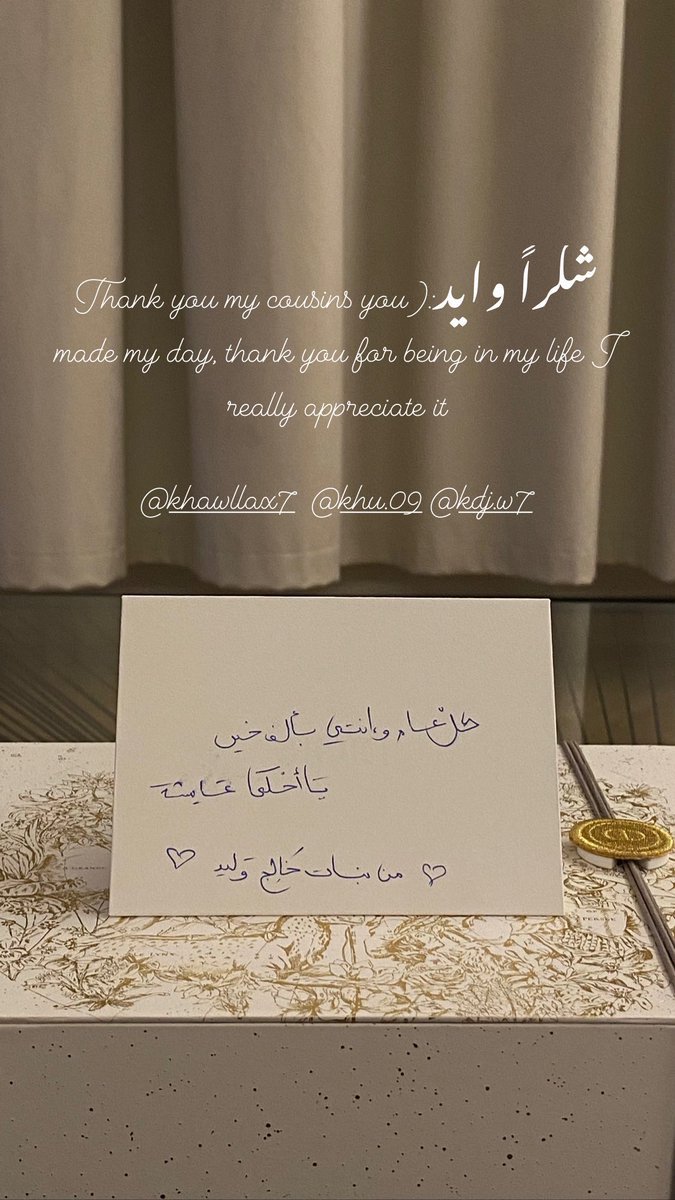 Thank you my cousins you ):شكراً وايد
made my day, thank you for being in my life I
really appreciate it
@khawllax7 @khu.09 @kdj.w7
كل عام وانتي بألف خير
يا أحلى عايشة
من بنات خالج وليد